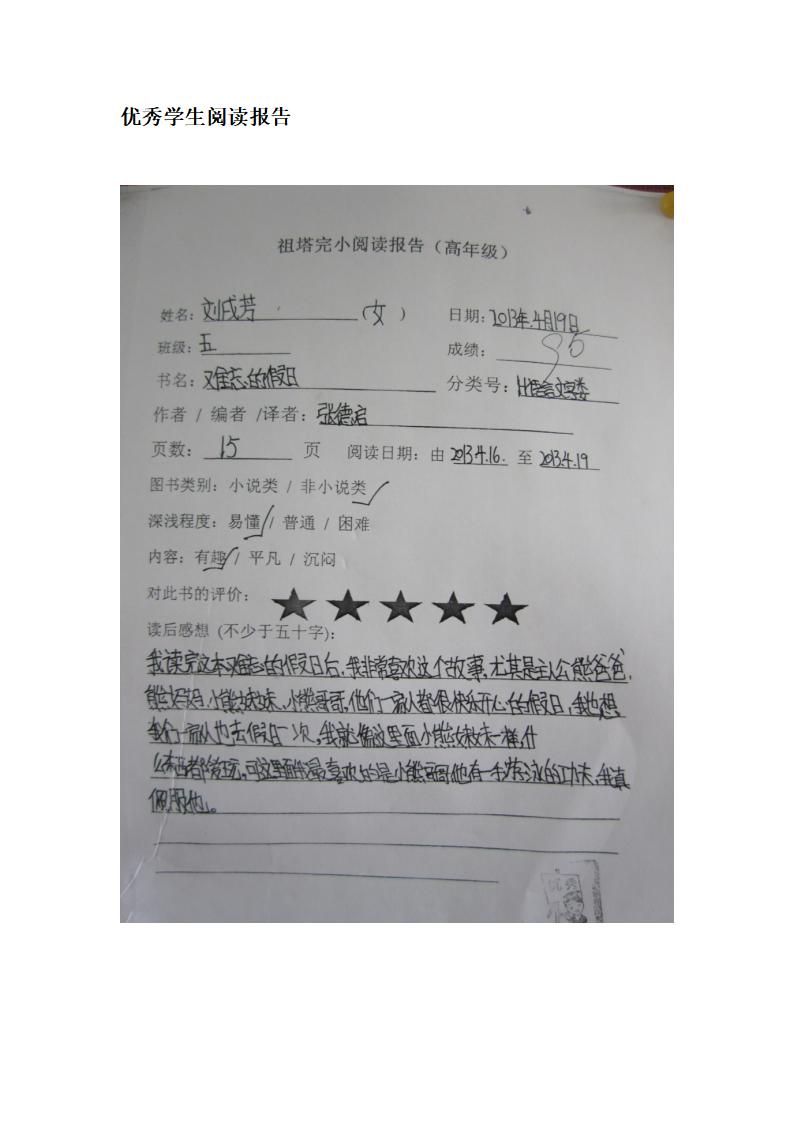 优秀学生阅读报告
祖塔完小阅读报告（高年级）
姓名：刘成芳（女） 日期：2013年.4月19日
班级：五 成绩：95
书名：难忘的假日 分类号：H语言文字类
作者 / 编者 /译者：张德启
页数：15 页 阅读日期：由 2013.4.16. 至 2013.4.19
图书类别：小说类 / 非小说类
深浅程度：易懂 / 普通 / 困难
内容：有趣 / 平凡 / 沉闷
对此书的评价：★★★★★
读后感想 (不少于五十字)：
我读完这本难忘的假日后，我非常喜欢这个故事，尤其是主人公熊爸爸，
熊妈妈，小熊妹妹、小熊哥哥，他们一家人都很快乐开心的假日，我也想
我们一家人也去假日一次，我就像这里面小熊妹妹一样，什
么东西都爱玩，可这里面我最喜欢的是小熊哥哥他有一手游泳的功夫，我真
佩服他。
优秀